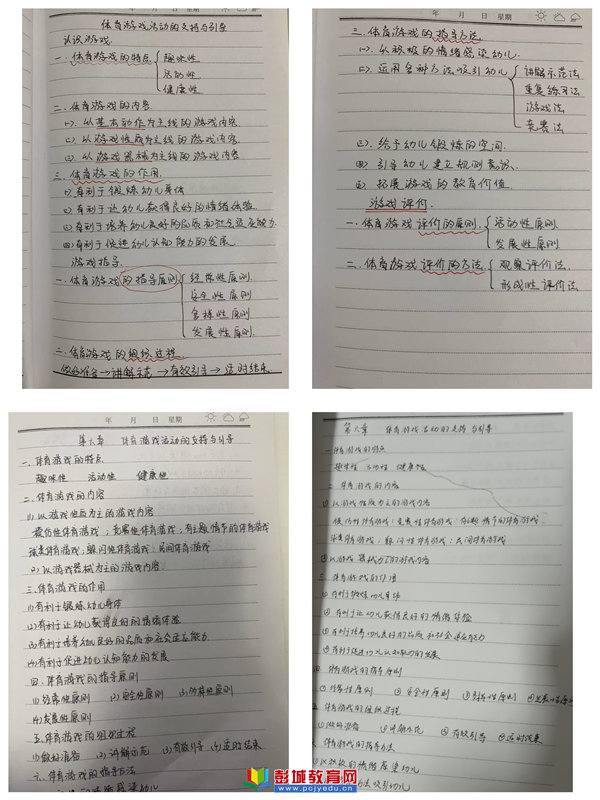 体育游戏活动的支持与引导
认识游戏.
一.体育游戏的特点 趣味性
活动性
健康性
二.体育游戏的内容
(一).以基本动作为主线的游戏内容
(二).以游戏性质为主线的游戏内容
(三).以游戏器械为主线的游戏内容
三.体育游戏的作用.
(一)有利于锻炼幼儿身体
(二)有利于让幼儿获得良好的情绪体验.
(三)有利于培养幼儿良好的品质和社会适应能力.
(四)有利于促进幼儿认知能力的发展.
游戏指导.
一.体育游戏的指导原则 经常性原则
安全性原则
多样性原则
发展性原则.
二.体育游戏的组织过程.
做好准备→讲解示范→有效引导→适时结束.
年 月 日 星期
三.体育游戏的指导方法.
(一).以积极的情绪感染幼儿
(二).运用多种方法吸引幼儿 讲解示范法
重复练习法
游戏法
竞赛法
(三).给予幼儿锻炼的空间.
(四)引导幼儿建立规则意识.
(五)拓展游戏的教育价值.
游戏评价.
一.体育游戏评价的原则. 活动性原则
发展性原则.
二.体育游戏评价的方法. 观察评价法.
形成性评价法
年 月 日 星期
第六章 体育游戏活动的支持与引导
一.体育游戏的特点
趣味性 活动性 健康性
二.体育游戏的内容
(1)以游戏性质为主的游戏内容
模仿性体育游戏;竞赛性体育游戏;有主题情节的体育游戏
球类体育游戏;躲闪性体育游戏;民间体育游戏
(2)以游戏器械为主的游戏内容
三.体育游戏的作用
(1)有利于锻炼幼儿身体
(2)有利于让幼儿获得良好的情绪体验
(3)有利于培养幼儿良好的品质和社会适应能力
(4)有利于促进幼儿认知能力的发展
四.体育游戏的指导原则
(1)经常性原则 (2)安全性原则 (3)多样性原则
(4)发展性原则
五.体育游戏的组织过程
(1)做好准备 (2)讲解示范 (3)有效引导 (4)适时结束
六.体育游戏的指导方法
年 月 日 星期
第六章 体育游戏活动的支持与引导
一.体育游戏的特点
趣味性 活动性 健康性
二.体育游戏的内容
以游戏性质为主的游戏内容
模仿性体育游戏;竞赛性体育游戏;有主题情节的体育游戏
球类体育游戏;躲闪性体育游戏;民间体育游戏
以游戏器械为主的游戏内容
三.体育游戏的作用
有利于锻炼幼儿身体
有利于让幼儿获得良好的情绪体验
有利于培养幼儿良好的品质和社会适应能力
有利于促进幼儿认知能力的发展
四 体育游戏的指导原则
经常性原则 安全性原则 多样性原则
体育游戏的组织过程
做好准备 讲解示范 有效引导 适时结束
体育游戏的指导方法
以积极的情绪感染幼儿
方法吸引幼儿
彭城教育网
www.pcjyedu.cn